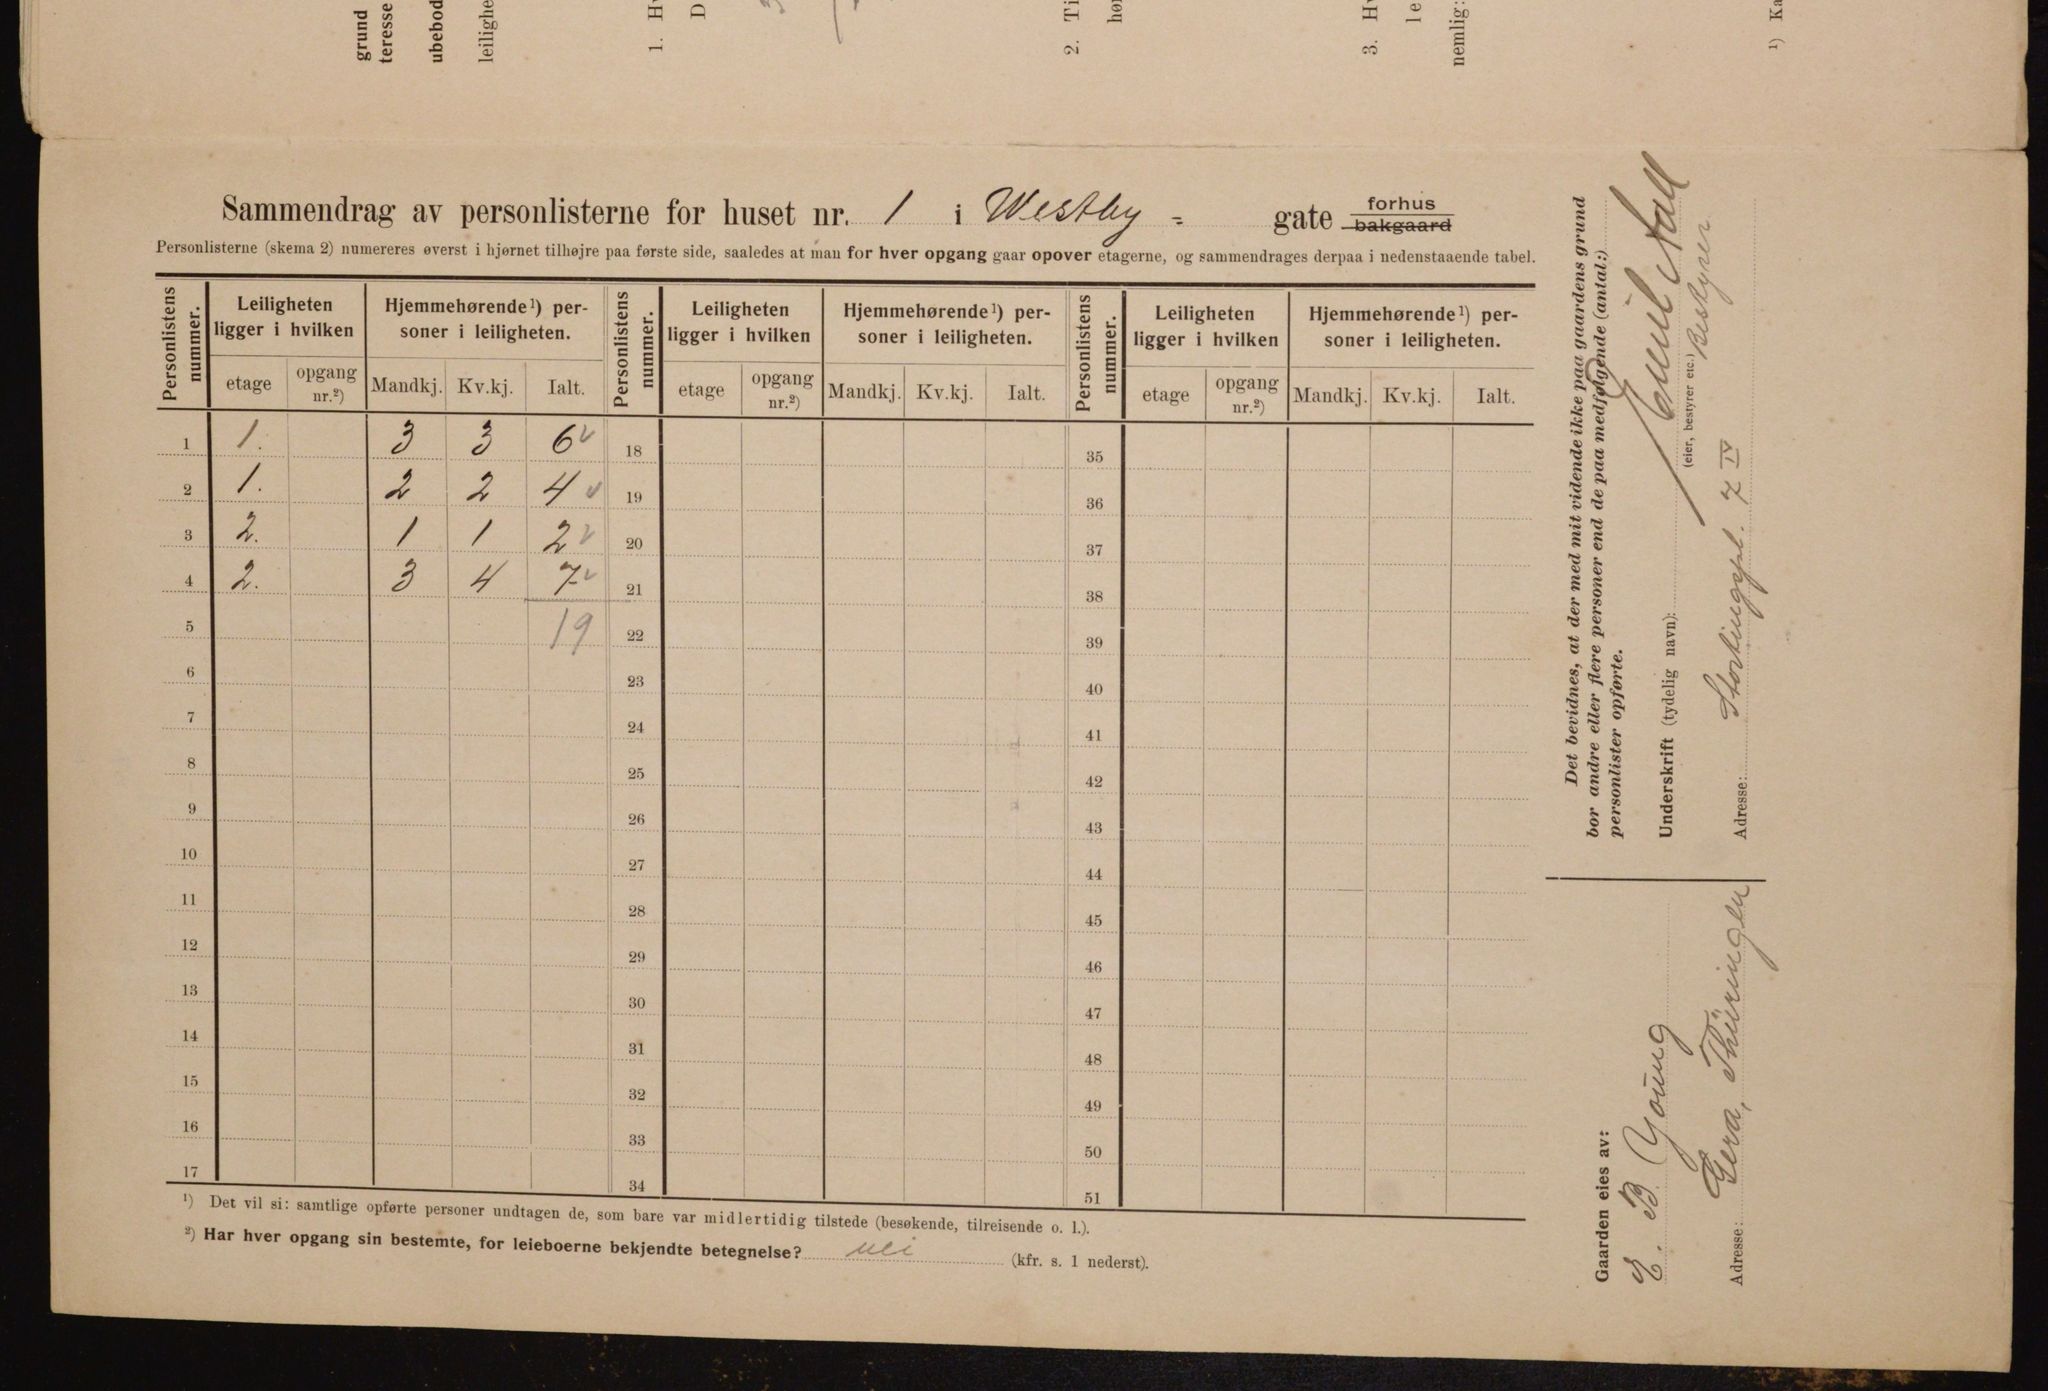 grund
teresse
ubebod
leilighe
1. Hv
D
2. Ti
hør
3. Hv
le
nemlig:
¹) Ka
Sammendrag av personlisterne for huset nr. 1 i Westby = gate forhus bakgaard
Personlisterne (skema 2) numereres øverst i hjørnet tilhøjre paa første side, saaledes at man for hver opgang gaar opover etagerne, og sammendrages derpaa i nedenstaaende tabel.
Personlistens nummer. Leiligheten ligger i hvilken Hjemmehørende¹) personer i leiligheten. Personlistens nummer. Leiligheten ligger i hvilken Hjemmehørende¹) personer i leiligheten. Personlistens nummer. Leiligheten ligger i hvilken Hjemmehørende¹) personer i leiligheten.
etage opgang nr.²) Mandkj. Kv.kj. Ialt. etage opgang nr.²) Mandkj. Kv.kj. Ialt. etage opgang nr.²) Mandkj. Kv.kj. Ialt.
1 1. 3 3 6 18 35
2 1. 2 2 4 19 36
3 2. 1 1 2 20 37
4 2. 3 4 7 21 38
5 19 22 39
6 23 40
7 24 41
8 25 42
9 26 43
10 27 44
11 28 45
12 29 46
13 30 47
14 31 48
15 32 49
16 33 50
17 34 51
¹) Det vil si: samtlige opførte personer undtagen de, som bare var midlertidig tilstede (besøkende, tilreisende o. l.).
²) Har hver opgang sin bestemte, for leieboerne bekjendte betegnelse? nei (kfr. s. 1 nederst).
Det bevidnes, at der med mit vidende ikke paa gaardens grund
bor andre eller flere personer end de paa medfølgende (antal:)
personlister opførte.
Underskrift (tydelig navn): Emil
(eier, bestyrer etc.) Bestyrer
Adresse: Stortingspl. 7 IV
Gaarden eies av:
E. B. Young
Adresse: Gera, Thüringen